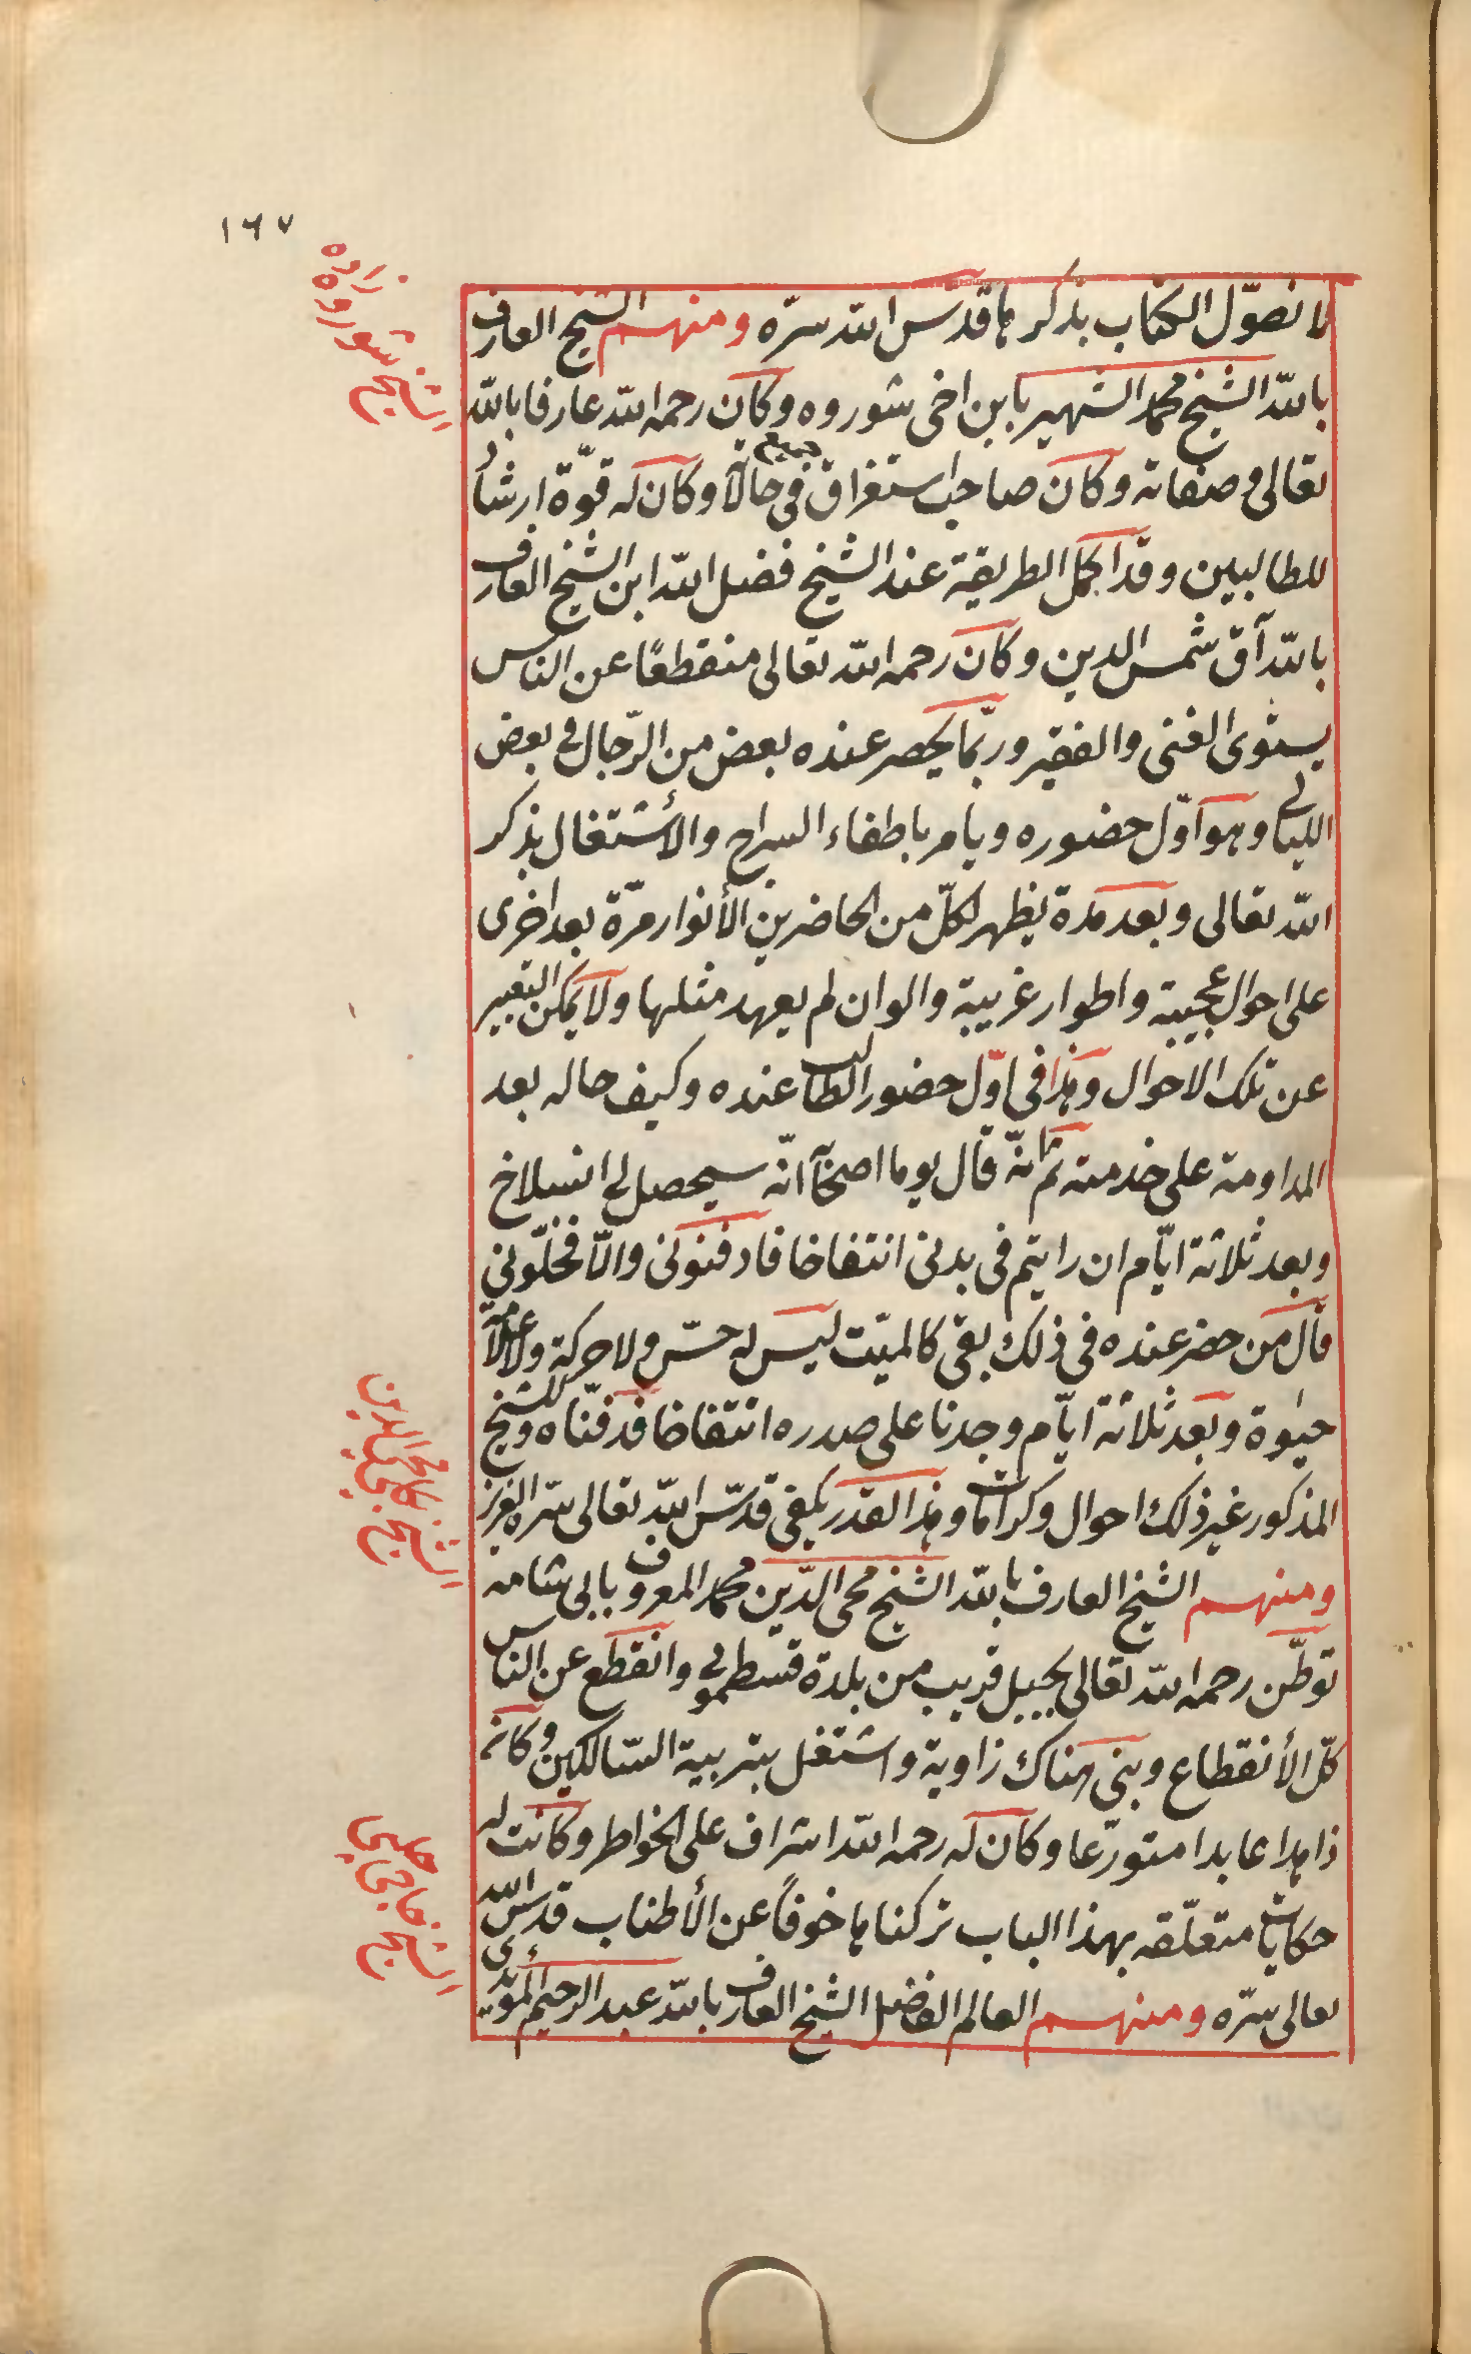 ١٦٧
الشيخ شوروه زاده
لا نصوّل الكتاب بذكرها قدّس الله سرّه ومنهم الشيخ العارف
بالله الشيخ محمد الشهير بابن اخى شوروه وكان رحمه الله عارفا بالله
تعالى وصفاته وكان صاحب استغراق فى جميع حالاته وكان له قوّة ارشاد
للطالبين وقد اكمل الطريقة عند الشيخ فضل الله ابن الشيخ العارف
بالله آق شمس الدين وكان رحمه الله تعالى منقطعًا عن الناس
يستوى الغنى والفقير وربّما يحصر عنده بعض من الرّجال فى بعض
الليالى وهو اوّل حضوره ويامر باطفاء السراج والأشتغال بذكر
الله تعالى وبعد مدة يظهر لكلّ من الحاضرين الأنوار مرّة بعد اخرى
على احوال عجيبة واطوار غريبة والوان لم يعهد مثلها ولا يمكن التعبير
عن تلك الاحوال وهذا فى اوّل حضور الطالب عنده وكيف حاله بعد
المداومة على خدمته ثم انّه قال يوما اصحابه انّه سيحصل لى انسلاخ
وبعد ثلاثة ايّام ان رايتم فى بدنى انتفاخا فادفنونى والّا فخلّونى
قال من حضر عنده فى ذلك بقى كالميّت ليس له حسّ ولا حركة ولا علامة
حيٰوة وبعد ثلاثة ايّام وجدنا على صدره انتفاخا فدفنّاه وللشيخ
المذكور غير ذلك احوال وكرامات وهذا القدر يكفى قدّس الله تعالى سرّه العزيز
الشيخ محى الدين
ومنهم الشيخ العارف بالله الشيخ محى الدّين محمد المعروف بابى شامه
توطّن رحمه الله تعالى بجبل قريب من بلدة قسطمونى وانقطع عن الناس
كلّ الأنقطاع وبنى هناك زاوية واشتغل بتربية السّالكين وكان
ذاهدا عابدا متورّعا وكان له رحمه الله اشراف على الخواطر وكانت له
حكايات متعلّقه بهذا الباب تركناها خوفاً عن الأطناب قدّس الله
الشيخ حاجى چلبى
تعالى سرّه ومنهم العالم الفاضل الشيخ العارف بالله عبد الرحيم المؤيّدى